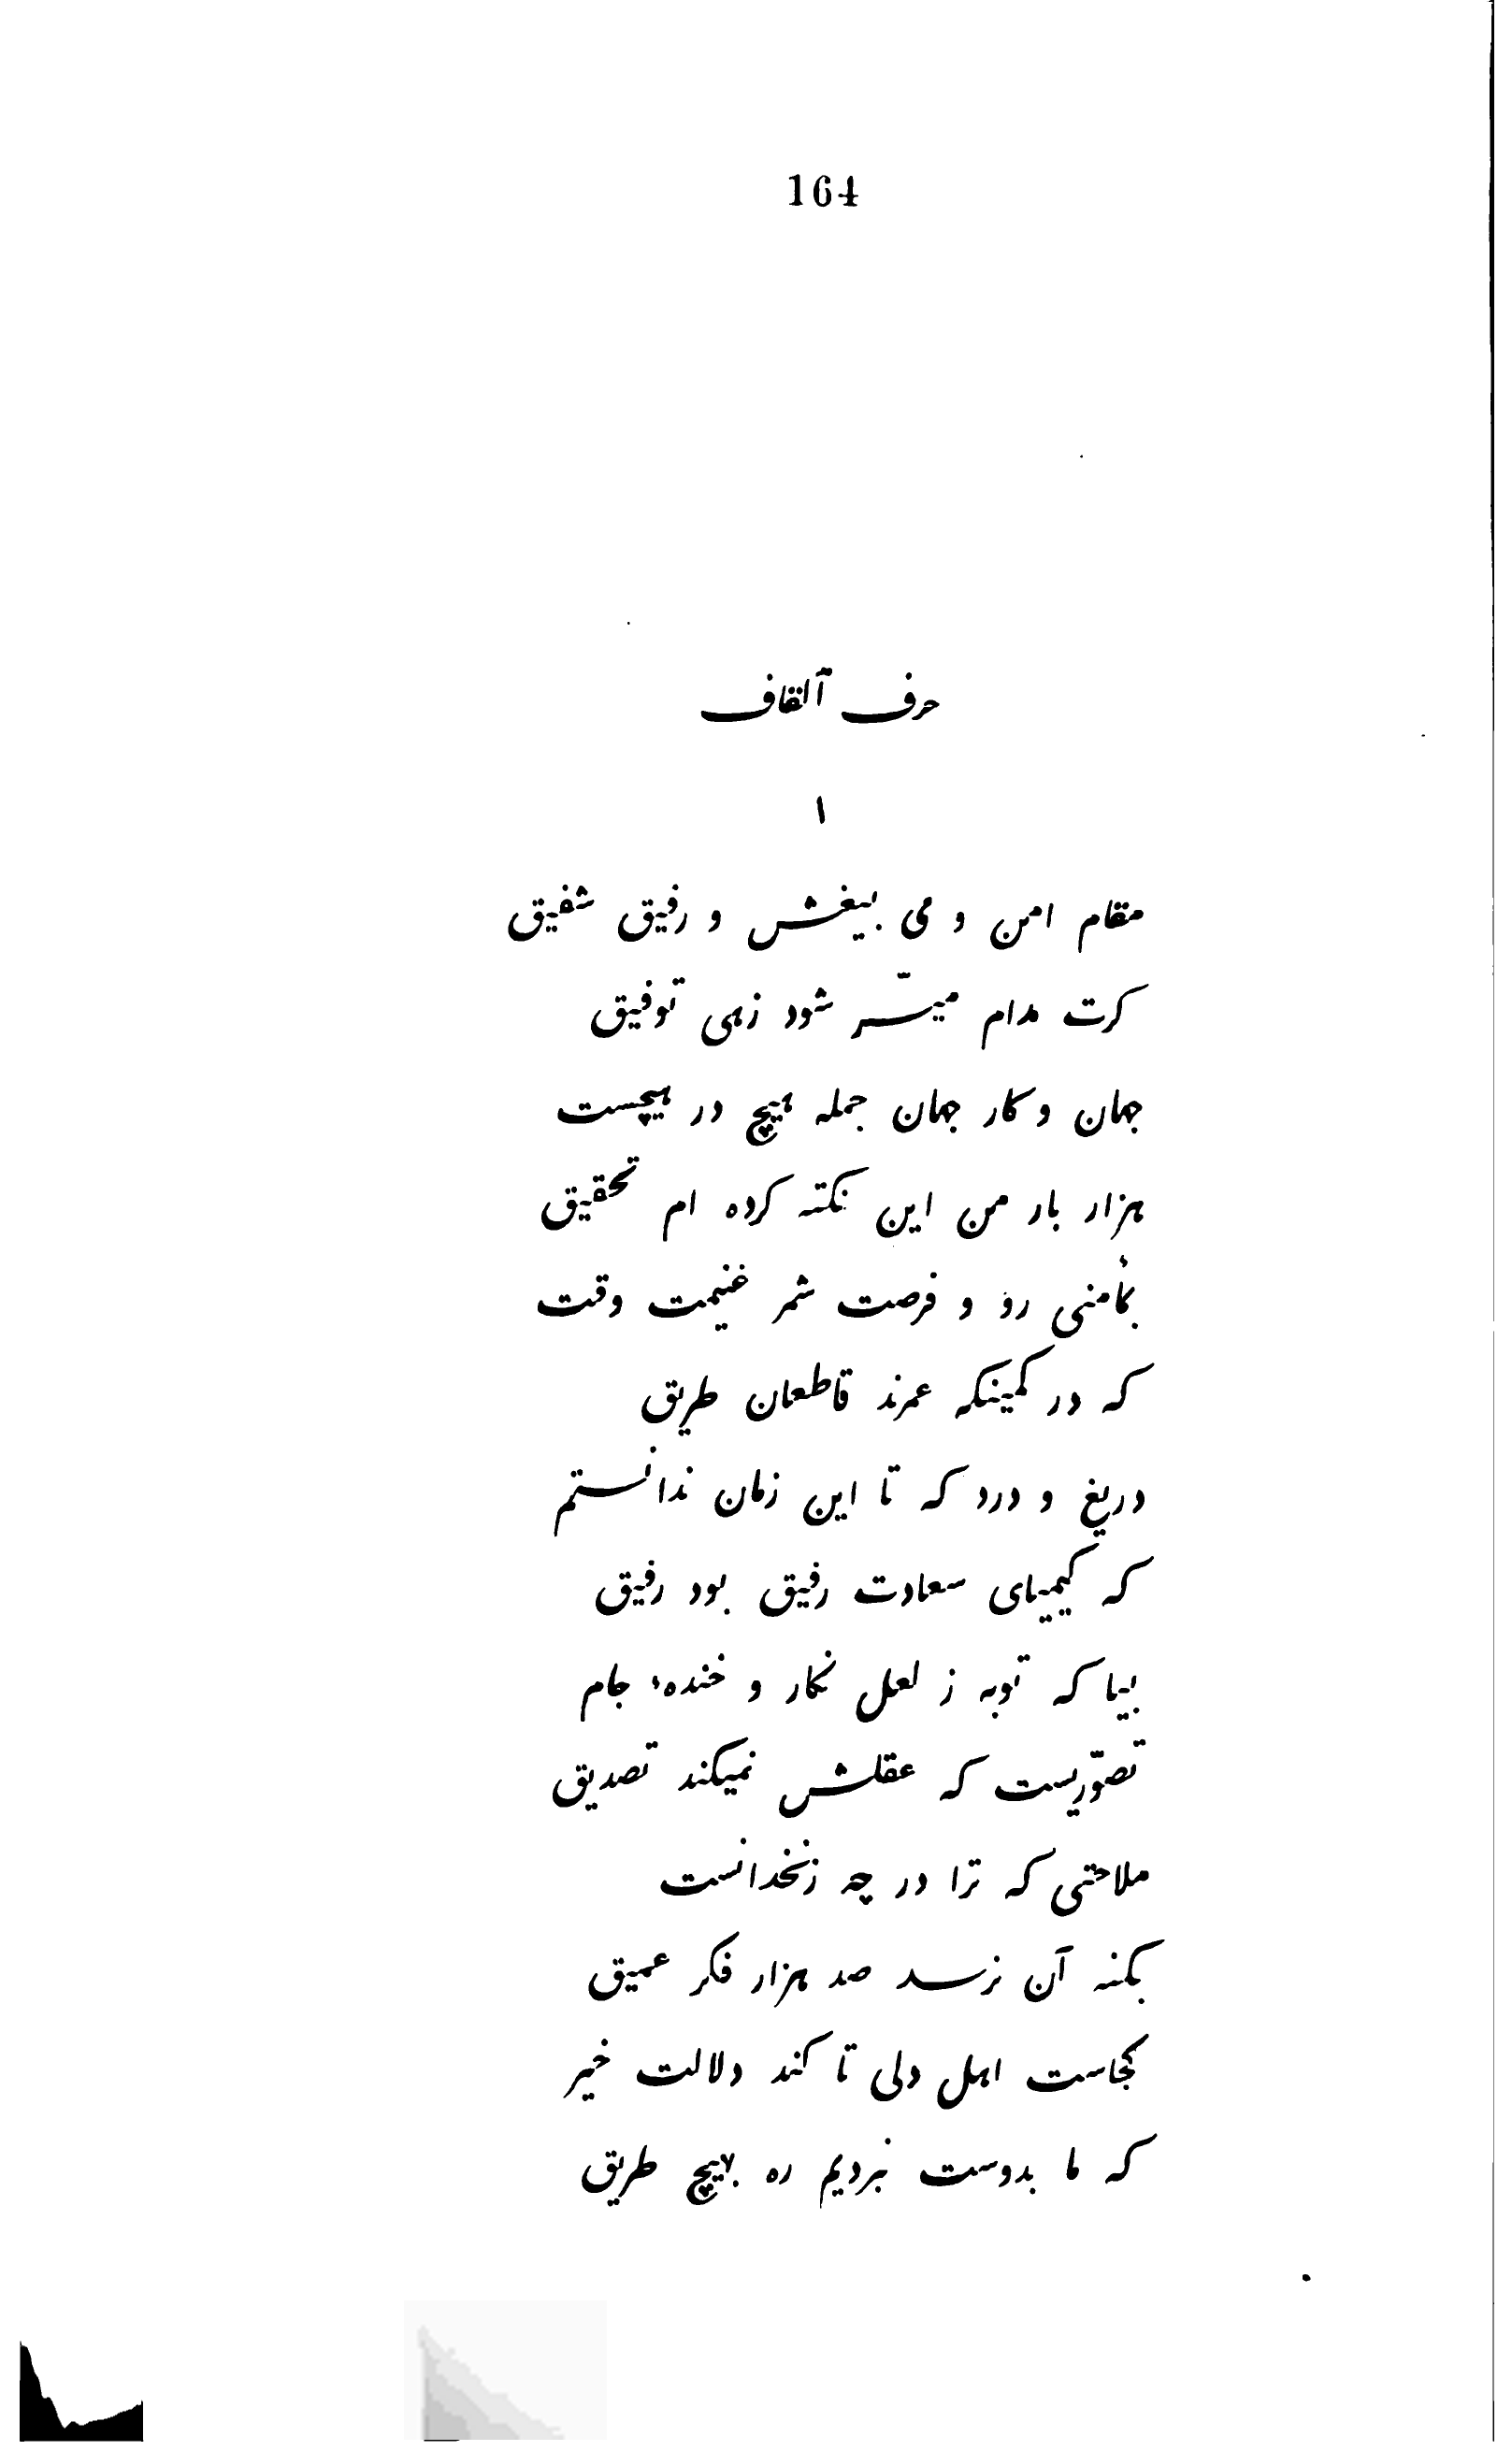 164
حرف آلقاف
۱
مقام امن و می بیغش و رفیق شفیق
کرت مدام میسّر شود زهی توفیق
جهان و کار جهان جمله هیچ در هیچست
هزار بار من این نکته کرده ام تحقیق
بمأمنی رو و فرصت شمر غنیمت وقت
که در کمینکه عمرند قاطعان طریق
دریغ و درد که تا این زمان ندانستم
که کیمیای سعادت رفیق بود رفیق
بیا که توبه ز لعل نکار و خندهٔ جام
تصوّریست که عقلش نمیکند تصدیق
ملاحتی که ترا در چه زنخدانست
بکنه آن نرسد صد هزار فکر عمیق
کجاست اهل دلی تا کند دلالت خیر
که ما بدوست نبردیم ره بهیچ طریق